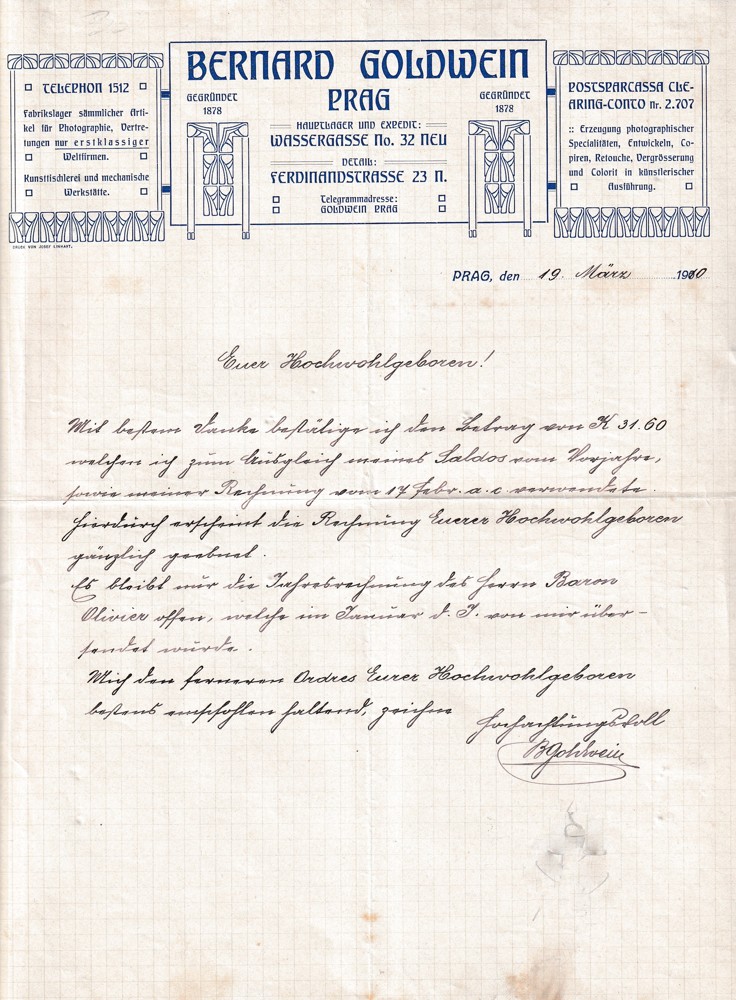 TELEPHON 1512
Fabrikslager sämmlicher Arti-
kel für Photographie, Vertre-
tungen nur erstklassiger
Weltfirmen.
Kunsttischlerei und mechanische
Werkstätte.
DRUCK VON JOSEF LINHART.
BERNARD GOLDWEIN
PRAG
GEGRÜNDET
1878
HAUPTLAGER UND EXPEDIT:
WASSERGASSE No. 32 NEU
DETAIL:
FERDINANDSTRASSE 23 N.
Telegrammadresse:
GOLDWEIN PRAG
GEGRÜNDET
1878
POSTSPARCASSA CLE-
ARING-CONTO Nr. 2.707
:: Erzeugung photographischer
Specialitäten, Entwickeln, Co-
piren, Retouche, Vergrösserung
und Colorit in künstlerischer
Ausführung.
PRAG, den 19. März 1910
Euer Hochwohlgeboren!
Mit bestem Danke bestätige ich den Betrag von K 31.60
welchen ich zum Ausgleich meines Saldos vom Vorjahre,
sowie meiner Rechnung vom 17 Febr. a. c. verwendete.
Hierdurch erscheint die Rechnung Euerer Hochwohlgeboren
gänzlich geebnet.
Es bleibt nur die Jahresrechnung des Herrn Baron
Olivier offen, welche im Januar d. J. von mir über-
sendet wurde.
Mich den ferneren Ordres Eurer Hochwohlgeboren
bestens empfohlen haltend, zeichne
Hochachtungsvoll
BGoldwein